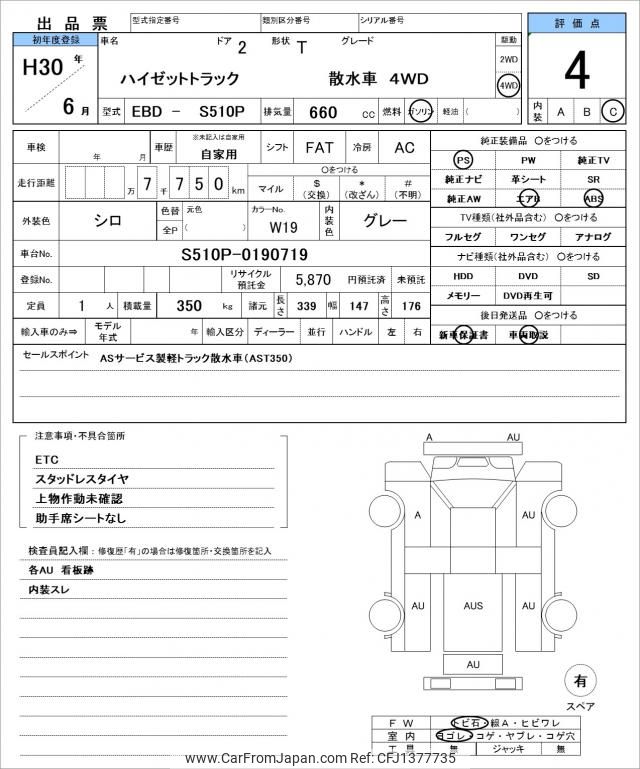 出品票
型式指定番号 類別区分番号 シリアル番号
評価点
4
内装 A B C
初年度登録
H30年
6月
車名 ドア 2 形状 T グレード
ハイゼットトラック 散水車 4WD
駆動
2WD
4WD
型式 EBD - S510P 排気量 660 CC 燃料 ガソリン 軽油 ( )
車検 年 月 車歴 ※未記入は自家用 自家用 シフト FAT 冷房 AC
走行距離 万 7 千 750 km ○をつける マイル $(交換) *(改ざん) #(不明)
外装色 シロ 色替 元色 全P ( ) カラーNo. W19 内装色 グレー
車台No. S510P-0190719
登録No. リサイクル預託金 5,870 円預託済 未預託
定員 1 人 積載量 350 kg 諸元 長さ 339 幅 147 高さ 176
輸入車のみ⇒ モデル年式 年 輸入区分 ディーラー 並行 ハンドル 左 右
純正装備品 ○をつける
PS PW 純正TV
純正ナビ 革シート SR
純正AW エアB ABS
TV種類(社外品含む) ○をつける
フルセグ ワンセグ アナログ
ナビ種類(社外品含む) ○をつける
HDD DVD SD
メモリー DVD再生可
後日発送品 ○をつける
新車保証書 車両取説
セールスポイント ASサービス製軽トラック散水車(AST350)
注意事項・不具合箇所
ETC
スタッドレスタイヤ
上物作動未確認
助手席シートなし
検査員記入欄：修復歴「有」の場合は修復箇所・交換箇所を記入
各AU 看板跡
内装スレ
A AU
A AU
AU AUS AU
AU
有
スペア
FW トビ石・線A・ヒビワレ
室内 ヨゴレ・コゲ・ヤブレ・コゲ穴
工具 無 ジャッキ 無
www.CarFromJapan.com Ref: CFJ1377735